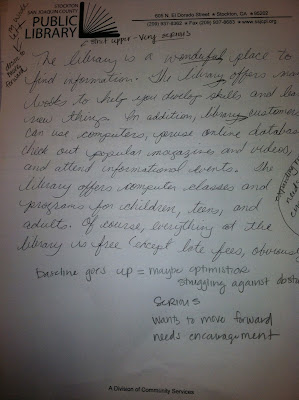 STOCKTON
SAN JOAQUIN COUNTY
PUBLIC
LIBRARY
605 N. El Dorado Street • Stockton, CA • 95202
(209) 937-8362 • Fax (209) 937-8683 • www.ssjcpl.org
strict upper - very serious
The library is a wonderful place to
find information. The library offers man
books to help you develop skills and lea
new things. In addition, library customers
can use computers, peruse online databas
check out popular magazines and videos,
and attend informational events. The
library offers computer classes and
programs for children, teens, and
adults. Of course, everything at the
library is free (except late fees, obviously
baseline goes up = maybe optimistic or
struggling against obstac
serious
wants to move forward
needs encouragement
A Division of Community Services